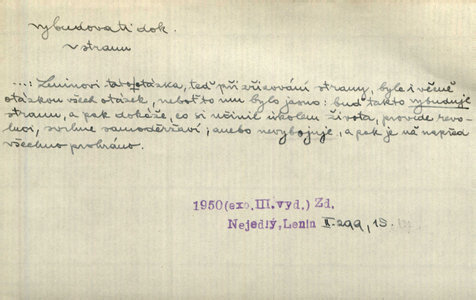 vybudovati dok.
stranu
...: Leninovi tato otázka, teď při zřizování strany, byla i věcně
otázkou všech otázek, neboť to mu bylo jasno: buď takto vybuduje
stranu, a pak dokáže, co si učinil úkolem života, provede revo-
luci, svrhne samoděržaví; anebo nevybojuje, a pak je vše
všechno prohráno.
1950 (exc. III. vyd.) Zd.
Nejedlý, Lenin II. 299, 19.